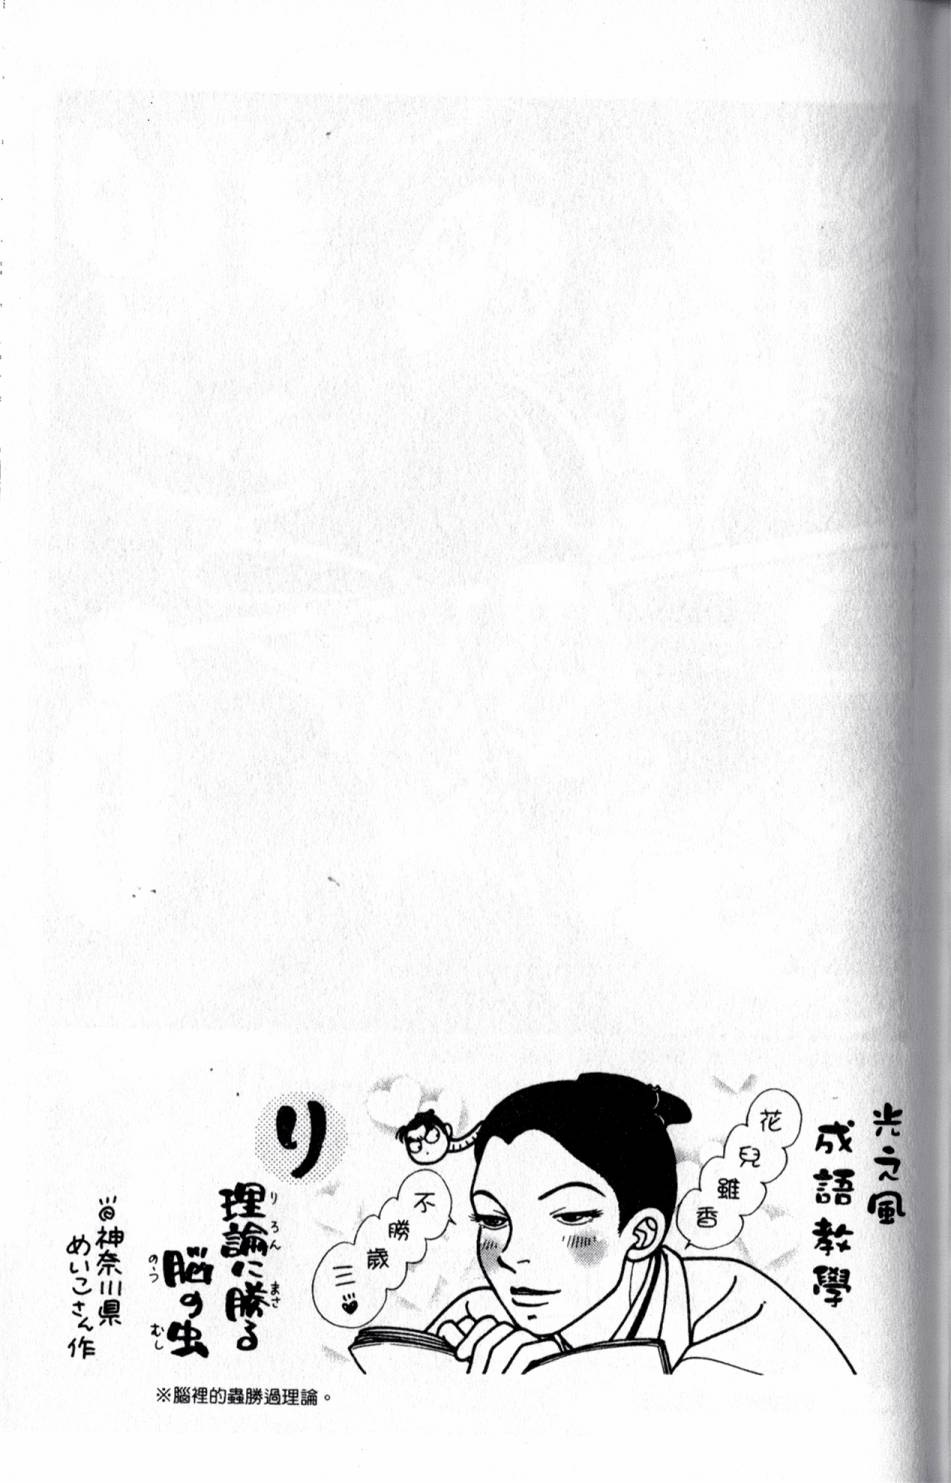 光之風
成語教學
花兒雖香
不勝歲三
り
理論に勝る
りろん まさ
脳の虫
のう むし
神奈川県
めいこさん作
※腦裡的蟲勝過理論。